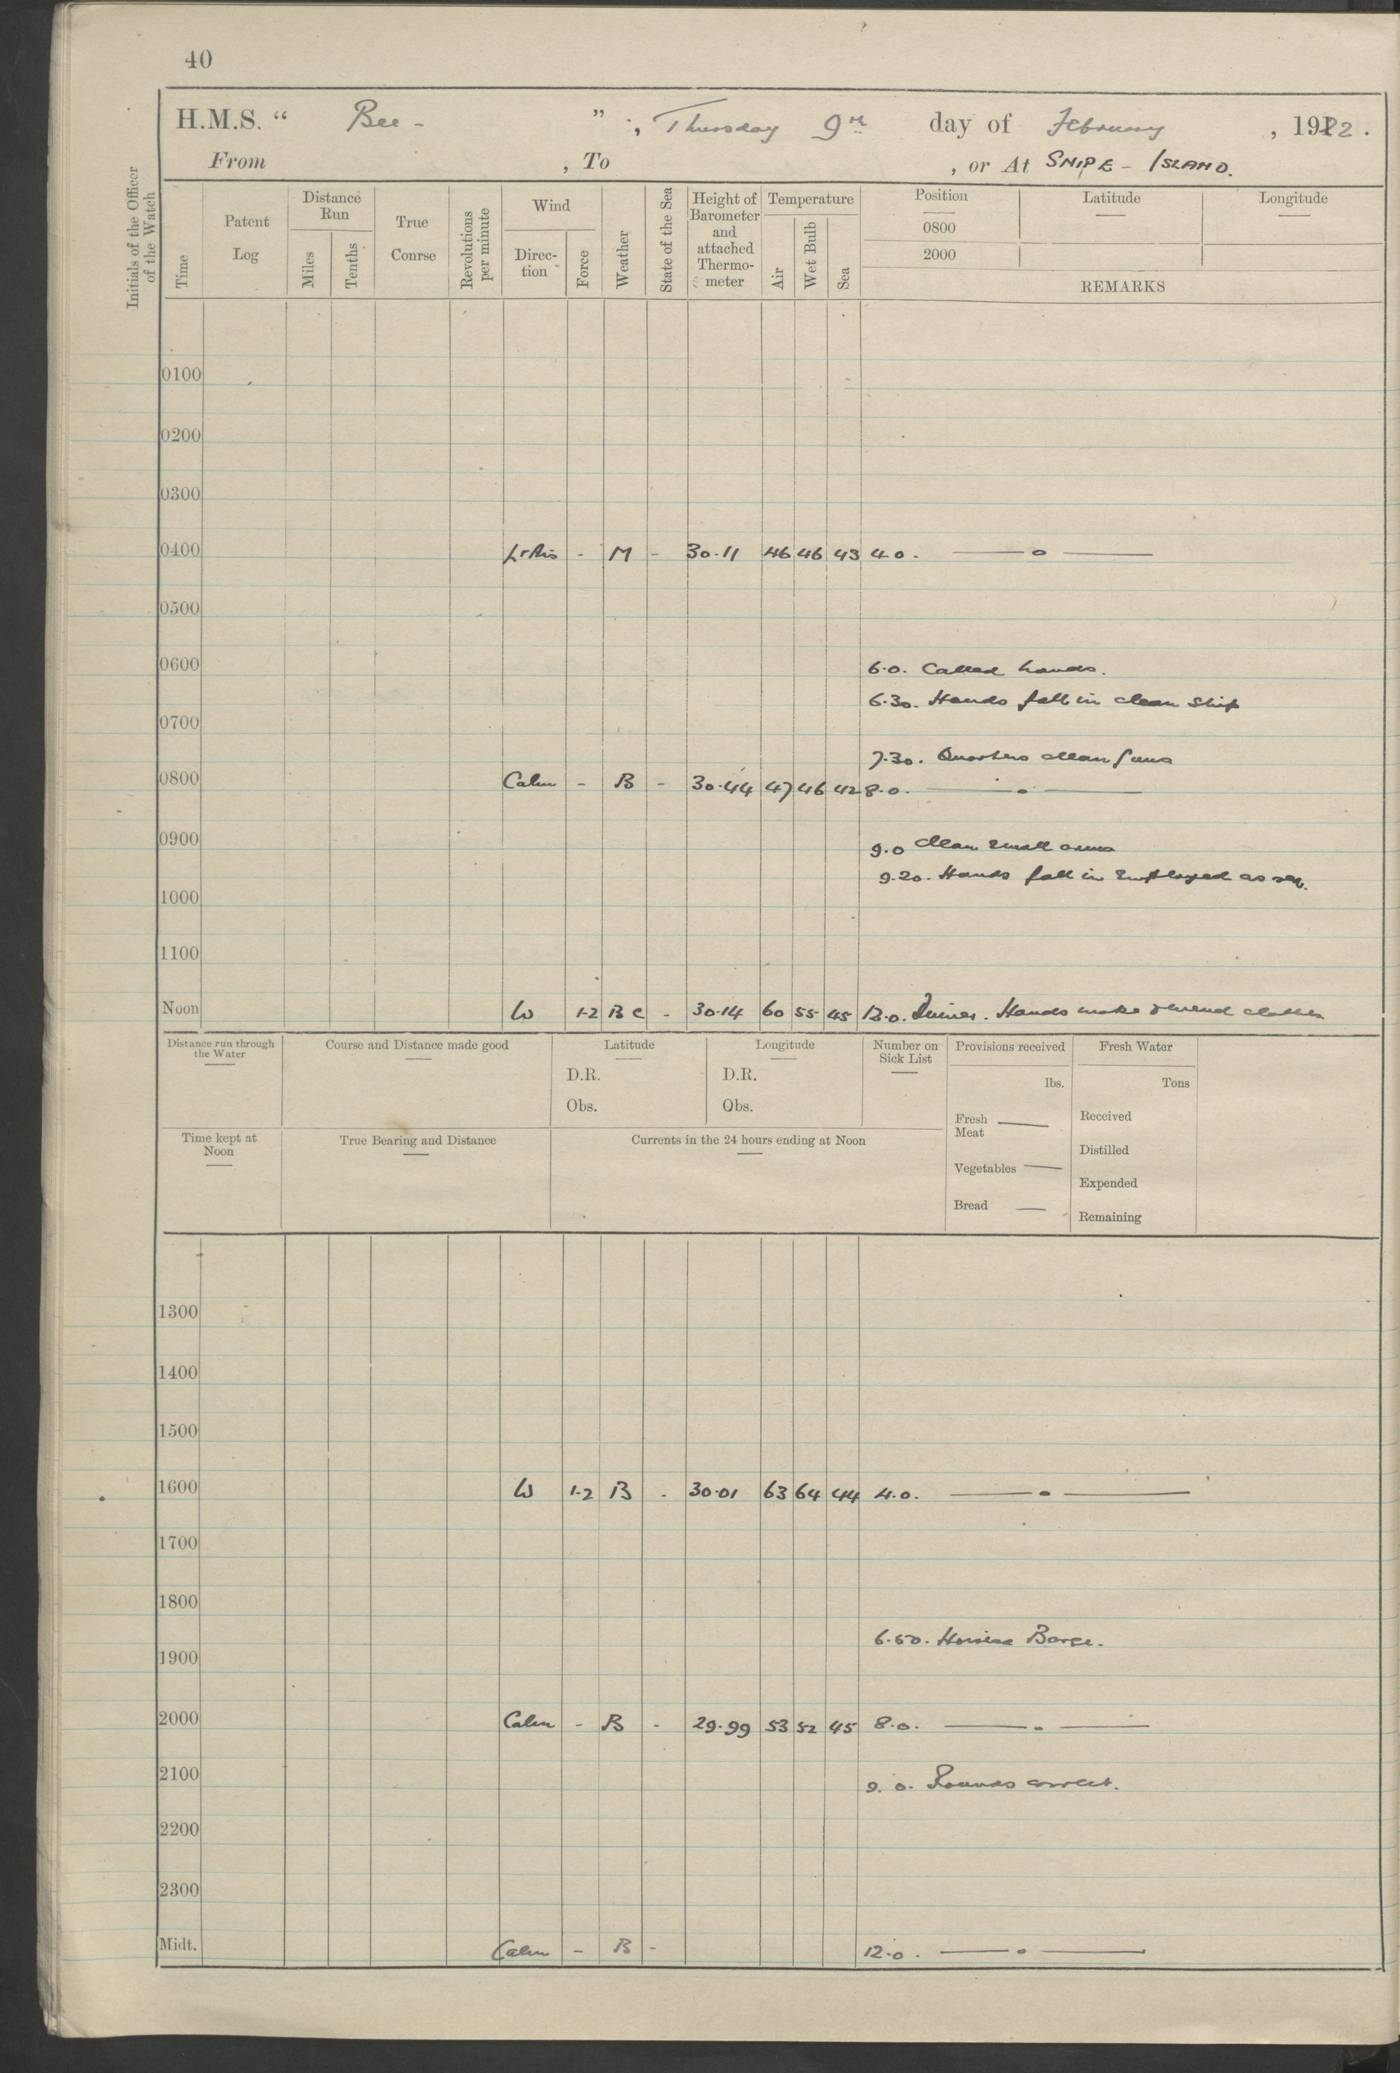 40
H.M.S. “ Bee - ” , Thursday 9th day of February , 1922 .
From , To , or At SNIPE - ISLAND.
Initials of the Officer of the Watch
Time
Patent Log
Distance Run
Miles
Tenths
True Course
Revolutions per minute
Wind
Direc-tion
Force
Weather
State of the Sea
Height of Barometer and attached Thermo-meter
Temperature
Air
Wet Bulb
Sea
Position
0800
2000
Latitude
Longitude
REMARKS
0100
0200
0300
0400 Lt Airs - M - 30.11 46 46 43 4.0. — o —
0500
0600 6.0. Called hands.
6.30. Hands fall in clean ship
0700
7.30. Quarters clean guns
0800 Calm - B - 30.44 47 46 42 8.0. — . —
0900 9.0 Clean small arms
9.20. Hands fall in Employed as req.
1000
1100
Noon W 1-2 B C - 30.14 60 55 45 12.0. Dinner. Hands make & mend clothes
Distance run through the Water
Course and Distance made good
Latitude
D.R.
Obs.
Longitude
D.R.
Obs.
Number on Sick List
Provisions received
lbs.
Fresh Meat —
Vegetables —
Bread —
Fresh Water
Tons
Received
Distilled
Expended
Remaining
Time kept at Noon
True Bearing and Distance
Currents in the 24 hours ending at Noon
1300
1400
1500
1600 W 1-2 B - 30.01 63 64 44 4.0. — . —
1700
1800
6.50. Hoisted Barge.
1900
2000 Calm - B - 29.99 53 52 45 8.0. — . —
2100 9.0. Rounds correct.
2200
2300
Midt. Calm - B - 12.0. — o —